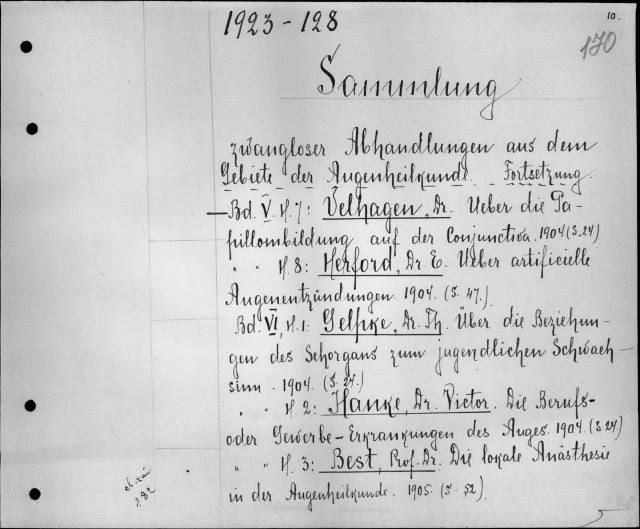 1923-128
10.
170
Sammlung
zwangloser Abhandlungen aus dem
Gebiete der Augenheilkunde. Fortsetzung.
Bd. V. H. 7: Velhagen, Dr. Ueber die Pa-
pillombildung auf der Conjunctiva. 1904 (S. 24)
" " H. 8: Herford, Dr. E. Ueber artificielle
Augenentzündungen. 1904. (S. 47.)
Bd. VI, H. 1: Gelpke, Dr. Th. Über die Beziehun-
gen des Sehorgans zum jugendlichen Schwach-
sinn. 1904. (S. 24.)
" " H. 2: Hanke, Dr. Victor. Die Berufs-
oder Gewerbe-Erkrankungen des Auges. 1904. (S 24)
" " H. 3: Best, Prof. Dr. Die lokale Anästhesie
in der Augenheilkunde. 1905. (S. 52).